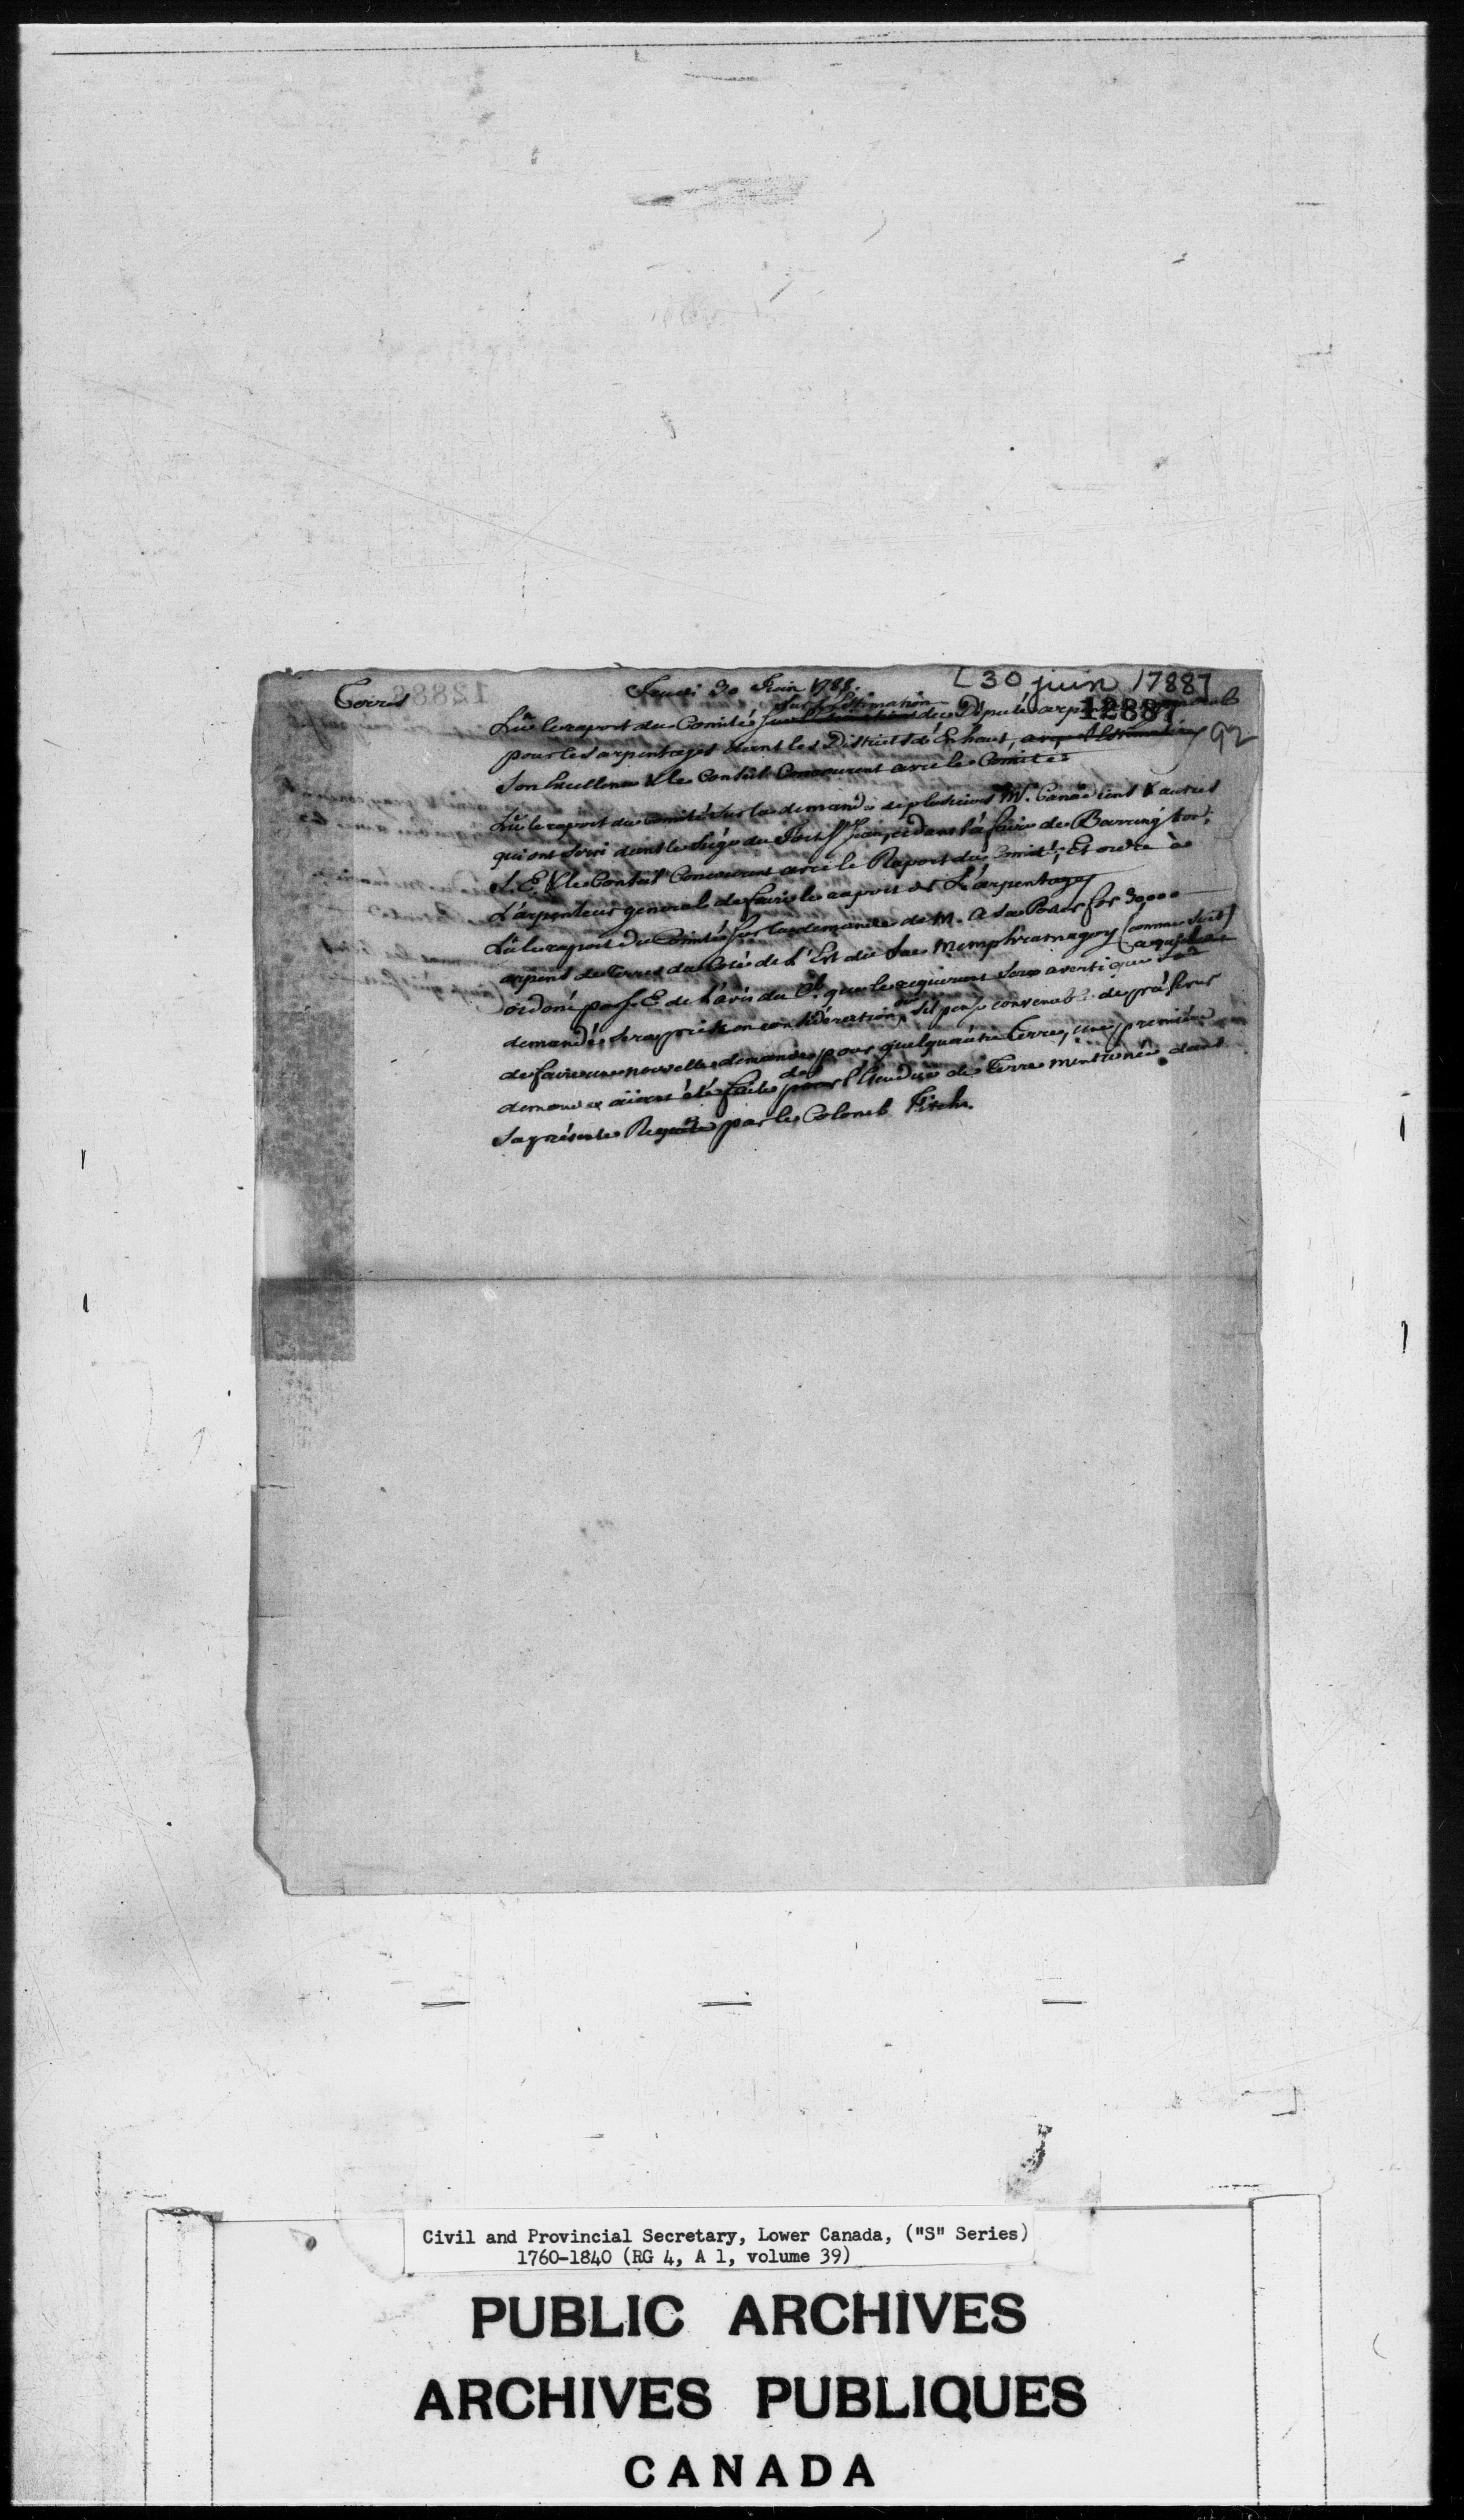 [30 juin 1788]
12887
92
Terres
Jeudi 30 Juin 1788.
sur l'Estimation
Lûe le raport du Comité du Député arpenteur general
pour les arpentages dans les Districts d'Enhaut,
Son Excellence & le Conseil Concourent avec le Comité
Lû le raport du Comité sur la demande de plusieurs Mrs. Canadiens & autres
qui ont servi dans le Siége du Fort St Jean, et dans l'afaire de Barrington;
S. E. & le Conseil Concourent avec le Raport du Comité; Et ordre à
L'arpenteur general de faire le raport de L'arpentage
Lû le raport du Comité sur la demande de M. pour 30,000
arpens de Terres du Coté de L'Est du Lac Memphramagog (comme suit)
ordoné par S. E. de l'avis du Cl. que le requerant sera averti que sa
demande sera prise en considération, ou s'il pense convenable de préferer
de faire une nouvelle demande pour quelqu'autre Terre, une premiére
demande aïant été faite de l'Etendue de Terre mentionée dans
sa présente Requête par le Colonel Fitch.
Civil and Provincial Secretary, Lower Canada, ("S" Series)
1760-1840 (RG 4, A 1, volume 39)
PUBLIC ARCHIVES
ARCHIVES PUBLIQUES
CANADA